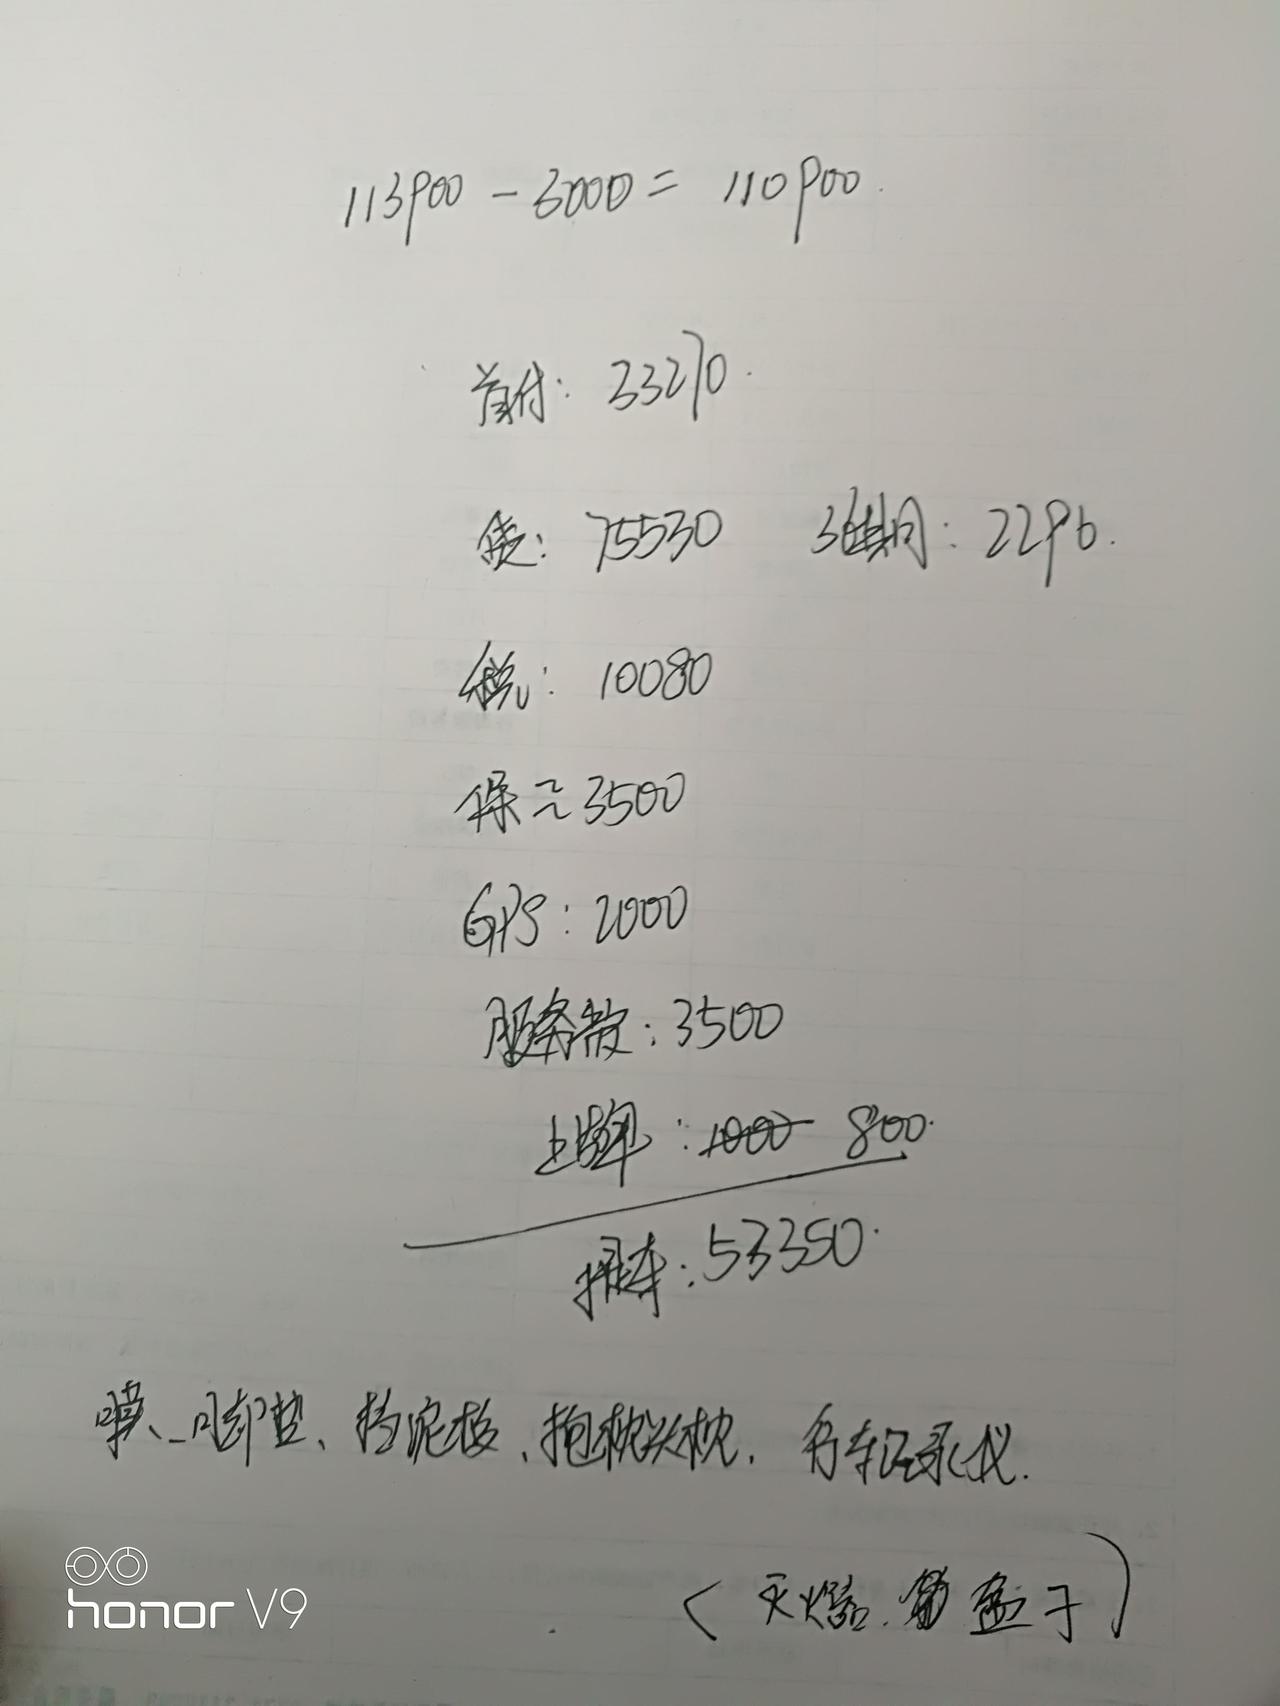 113900 - 3000 = 110900.
首付: 33270.
贷: 75530 3年月: 2296.
税: 10080
保: 3500
GPS: 2000
服务费: 3500
上牌: 1000 800.
提车: 53350.
膜、脚垫、挡泥板、抱枕头枕, 行车记录仪.
(灭火器. 盒子)
honor V9